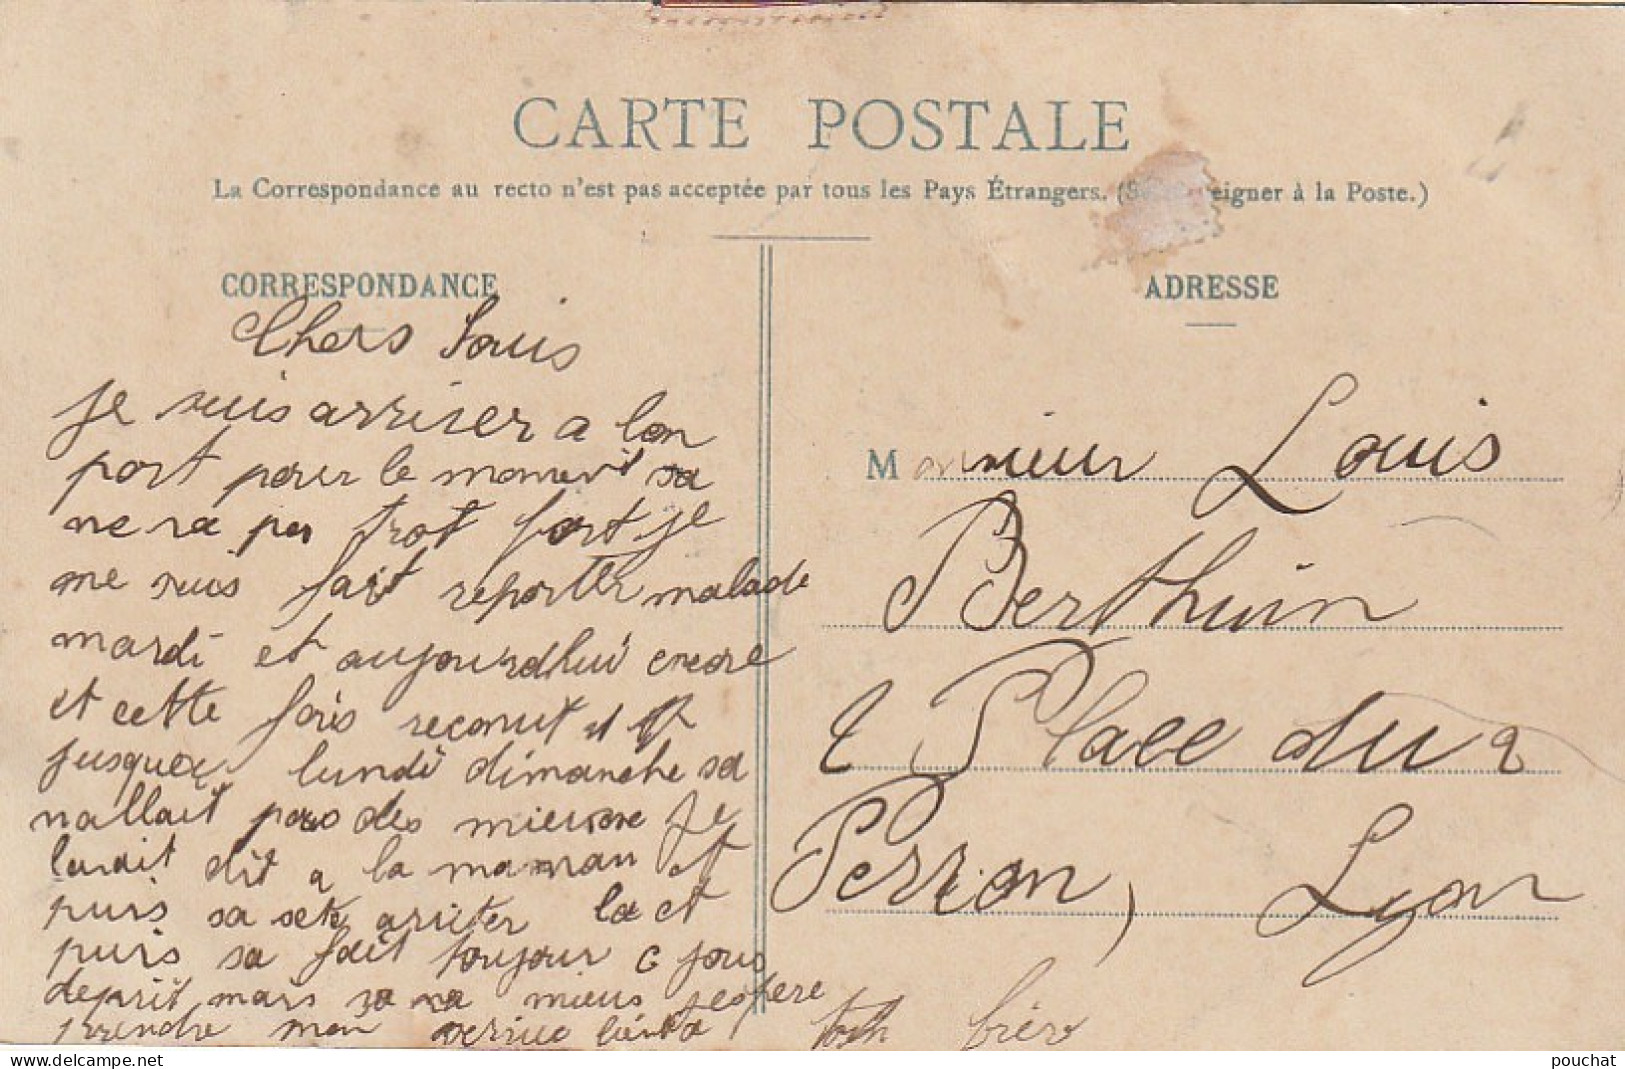 CARTE POSTALE
La Correspondance au recto n'est pas acceptée par tous les Pays Étrangers. (Se eigner à la Poste.)
CORRESPONDANCE
Chers Louis
je suis arriver a bon
port pour le moment sa
ne va pas trot fort je
me suis fait reporter malade
mardi et aujourdhui encore
et cette fois reconut et
jusquex lundi dimanche sa
nallait pas des mieux je
lavait dit a la maman et
puis sa sete arriter la et
puis sa fait toujour 6 jours
deprit mais sa va mieus jespere
prendre mon servive bientot
ton frère
ADRESSE
Monsieur Louis
Berthuin
2 Place du 2
Perron, Lyon
pouchat